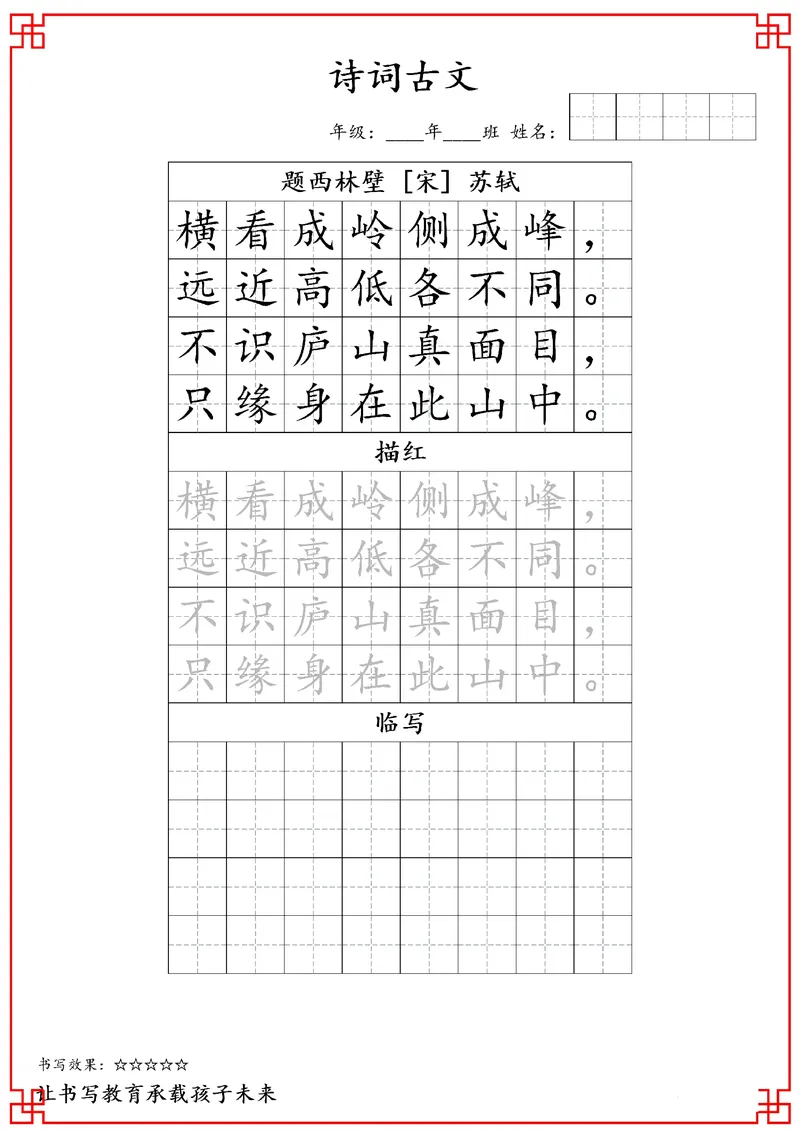 诗词古文
年级：____年____班 姓名：
题西林壁 [宋] 苏轼
横看成岭侧成峰，
远近高低各不同。
不识庐山真面目，
只缘身在此山中。
描红
横看成岭侧成峰，
远近高低各不同。
不识庐山真面目，
只缘身在此山中。
临写
书写效果：☆☆☆☆☆
让书写教育承载孩子未来